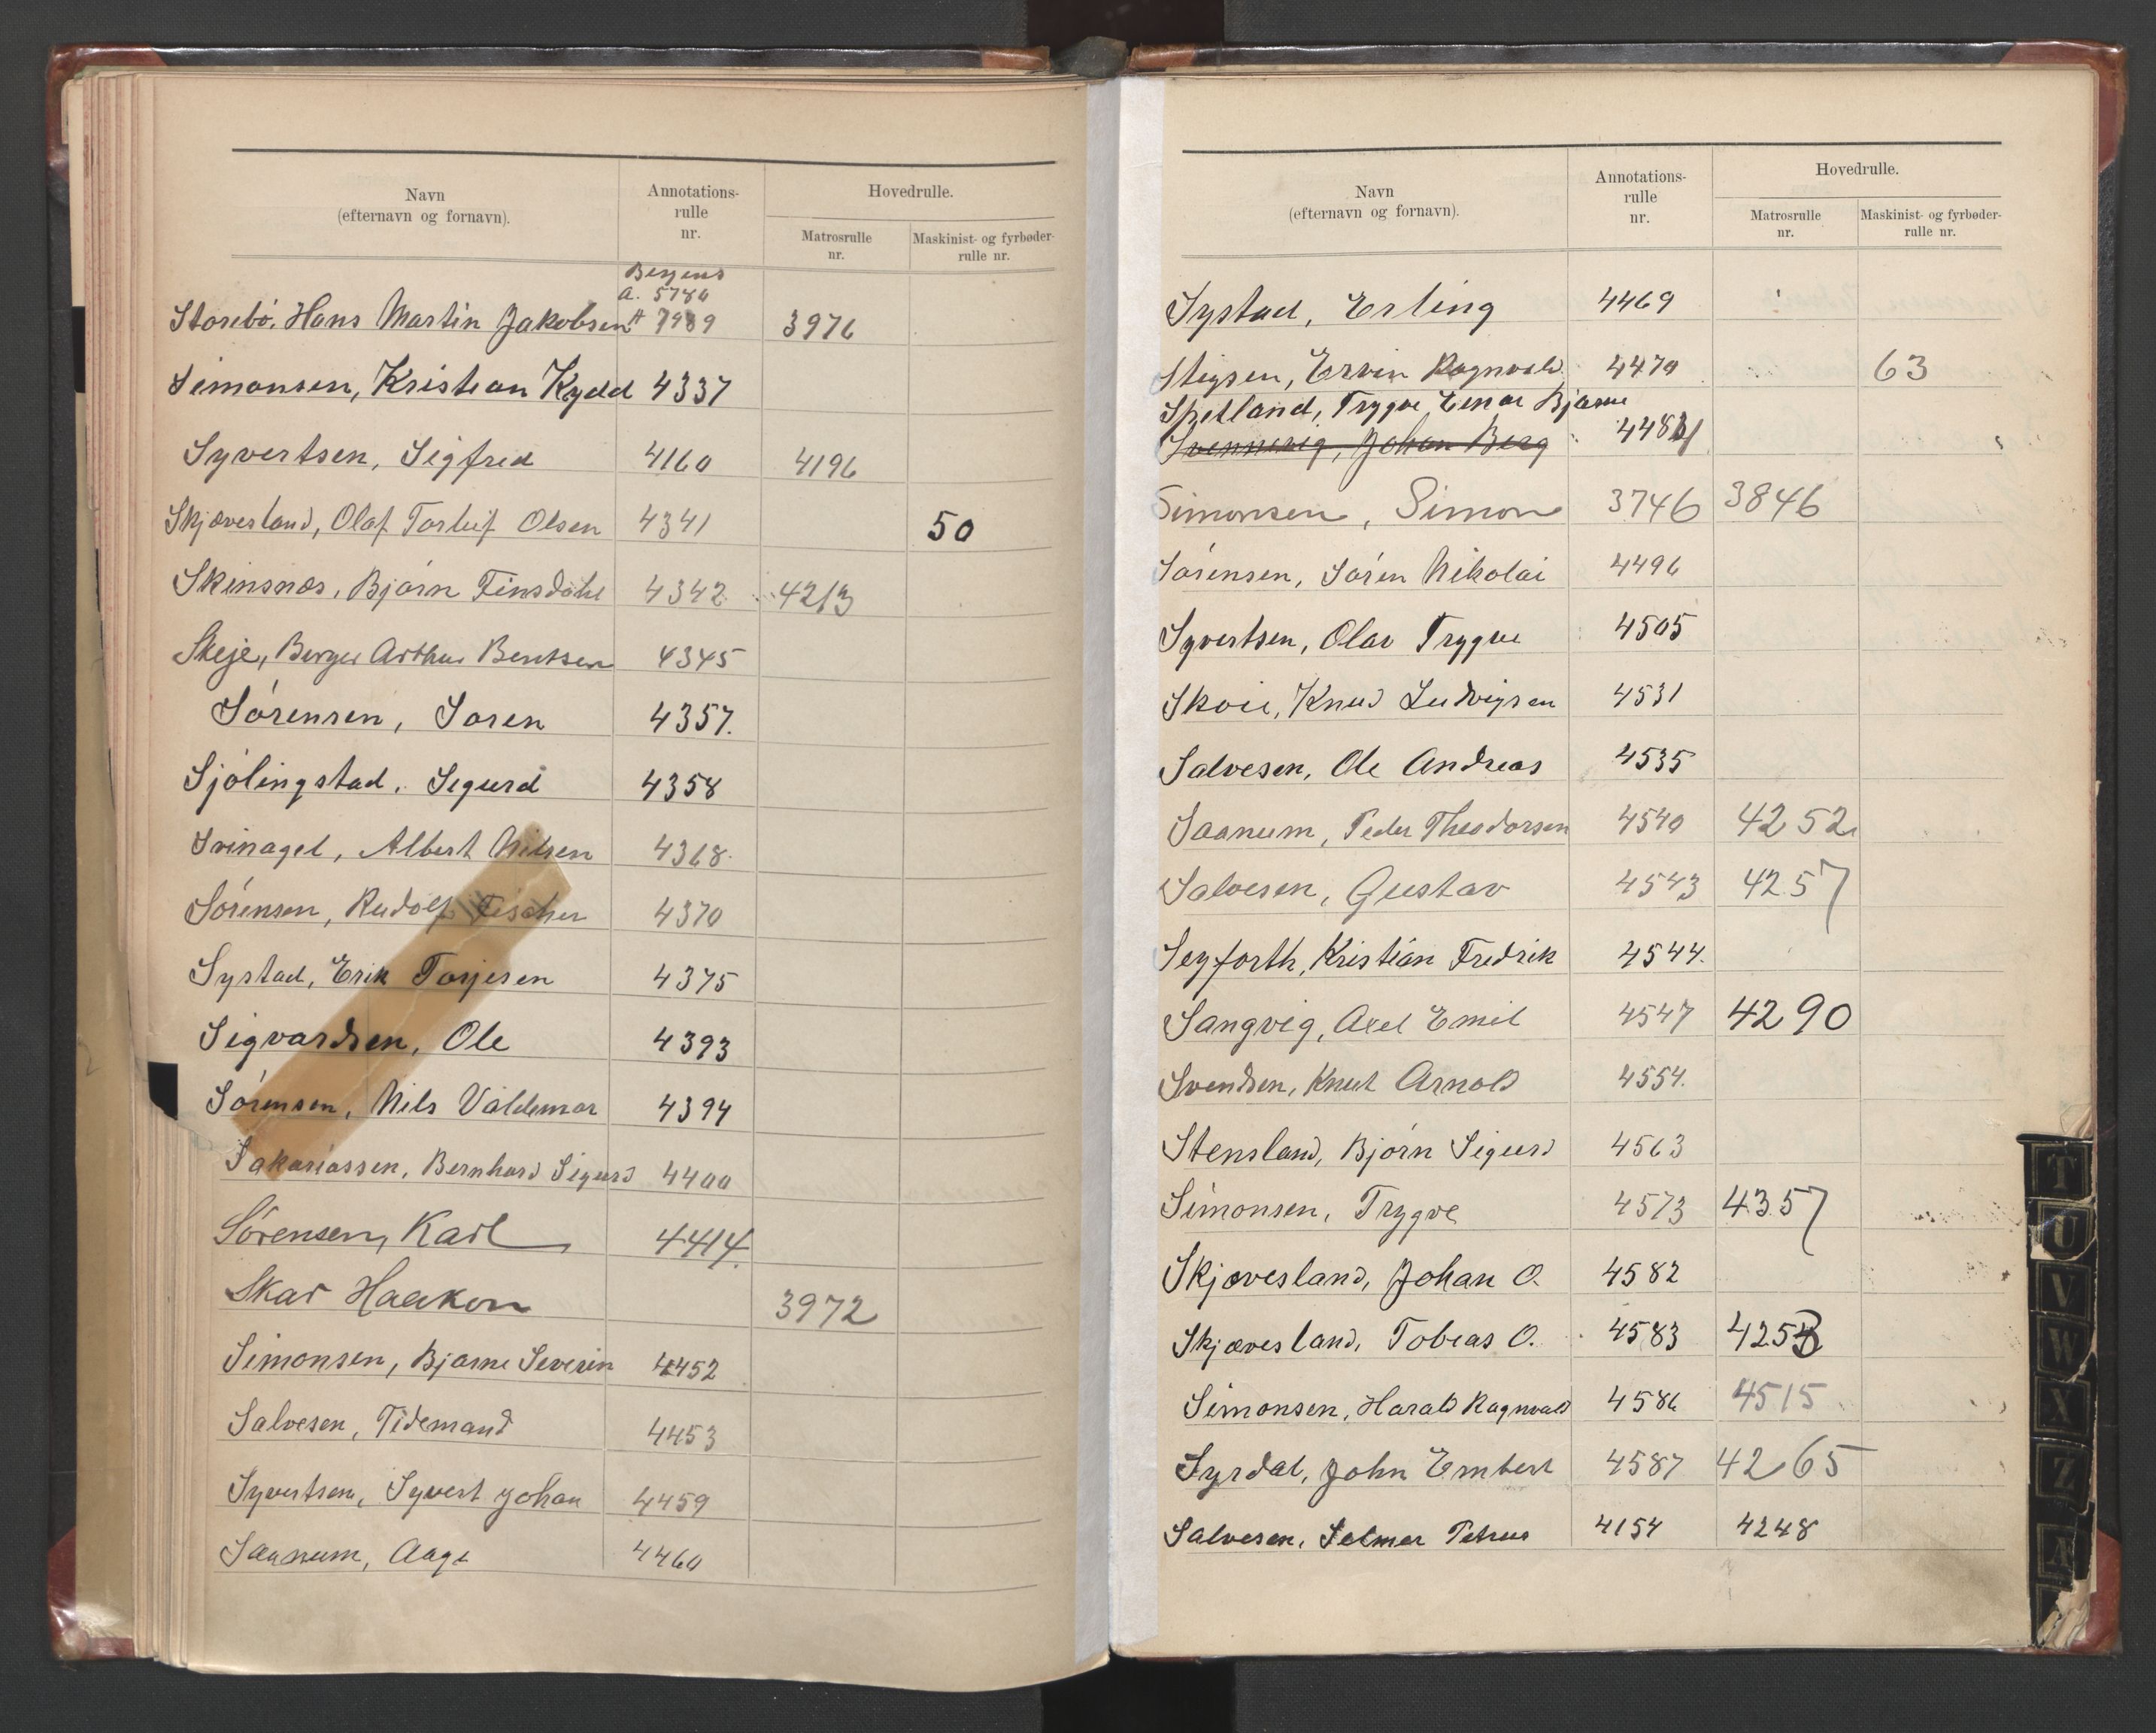 Navn
(efternavn og fornavn).
Annotations-
rulle
nr.
Hovedrulle.
Matrosrulle
nr.
Maskinist- og fyrbøder-
rulle nr.
Bergens
a. 5780
Storebö, Hans Martin Jakobsen A 7989 3976
Simonsen, Kristian Kydd 4337
Syvertsen, Sigfred 4160 4196
Skjævesland, Olaf Torleif Olsen 4341 50
Skinsnæs, Bjørn Finsdahl 4342 4213
Skeje, Berger Arthur Bentsen 4345
Sörensen, Soren 4357.
Sjölingstad, Sigurd 4358
Svinagel, Albert Nilsen 4368.
Sörensen, Rudolf Fischer 4370
Systad, Erik Torjesen 4375
Sigvardsen, Ole 4393
Sörensen, Nils Valdemar 4394
Sakariassen, Bernhard Sigurd 4400
Sörensen, Karl 4414.
Skar Haakon 3972
Simonsen, Bjarne Severin 4452
Salvesen, Tidemand 4453
Syvertsen, Syvert Johan 4459
Saanum, Aage 4460
Navn
(efternavn og fornavn).
Annotations-
rulle
nr.
Hovedrulle.
Matrosrulle
nr.
Maskinist- og fyrbøder-
rulle nr.
Systad, Erling 4469
Stigsen, Ervin Ragnvald 4470 63
Spetland, Trygve Einar Bjarne
Svennevig, Johan Berg 4484
Simonsen, Simon 3746 3846
Sörensen, Sören Nikolai 4496
Syvertsen, Olav Trygve 4505
Skoie, Knud Ludvigsen 4531
Salvesen, Ole Andreas 4535
Saanum, Peder Theodorsen 4540 4252
Salvesen, Gustav 4543 4257
Seyforth, Kristian Fredrik 4544.
Sangvig, Axel Emil 4547 4290
Svendsen, Knut Arnold 4554.
Stensland, Bjørn Sigurd 4563
Simonsen, Trygve 4573 4357
Skjævesland, Johan O. 4582
Skjævesland, Tobias O. 4583 4253
Simonsen, Harald Ragnvald 4586 4515
Syrdal, John Embert 4587 4265
Salvesen, Selmer Petrus 4154 4248
T
U
V
W
X
Z